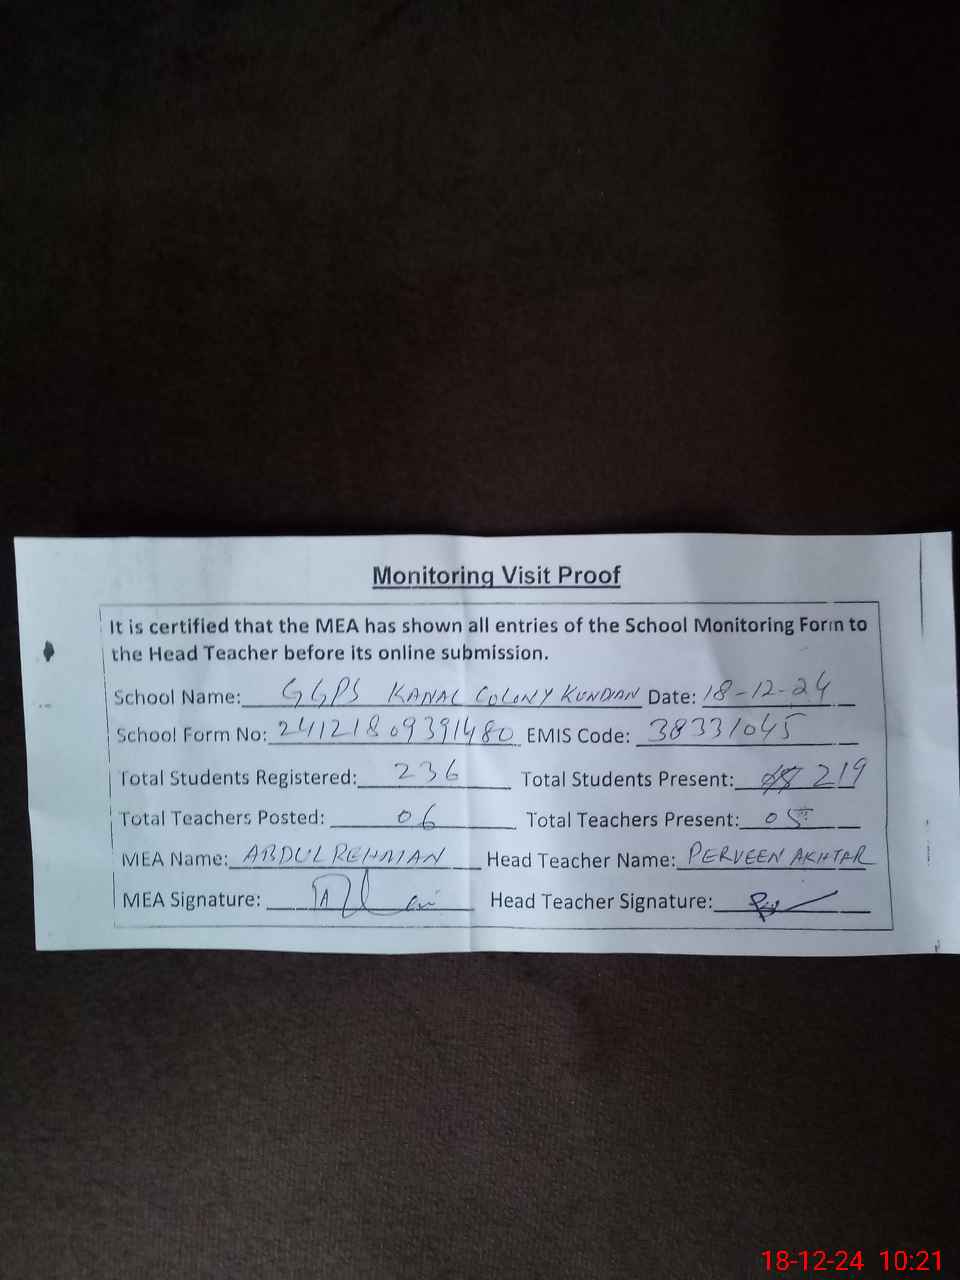 Monitoring Visit Proof
It is certified that the MEA has shown all entries of the School Monitoring Form to
the Head Teacher before its online submission.
School Name: GGPS KANAL COLONY KUNDIAN Date: 18-12-24
School Form No: 24121809391480 EMIS Code: 38331045
Total Students Registered: 236 Total Students Present: 219
Total Teachers Posted: 06 Total Teachers Present: 05
MEA Name: ABDUL REHMAN Head Teacher Name: PERVEEN AKHTAR
MEA Signature: Head Teacher Signature:
18-12-24 10:21